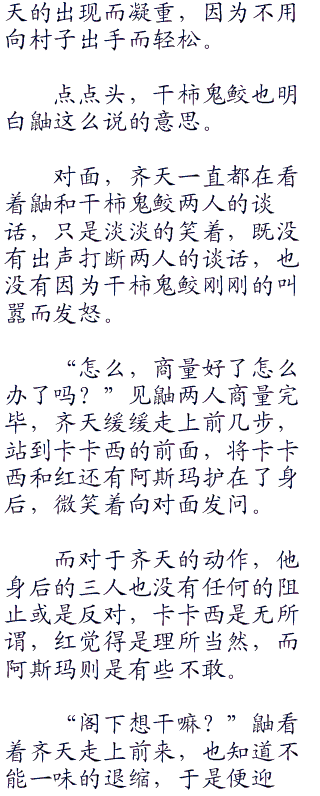 天的出现而凝重，因为不用
向村子出手而轻松。
点点头，干柿鬼鲛也明
白鼬这么说的意思。
对面，齐天一直都在看
着鼬和干柿鬼鲛两人的谈
话，只是淡淡的笑着，既没
有出声打断两人的谈话，也
没有因为干柿鬼鲛刚刚的叫
嚣而发怒。
“怎么，商量好了怎么
办了吗？”见鼬两人商量完
毕，齐天缓缓走上前几步，
站到卡卡西的前面，将卡卡
西和红还有阿斯玛护在了身
后，微笑着向对面发问。
而对于齐天的动作，他
身后的三人也没有任何的阻
止或是反对，卡卡西是无所
谓，红觉得是理所当然，而
阿斯玛则是有些不敢。
“阁下想干嘛？”鼬看
着齐天走上前来，也知道不
能一味的退缩，于是便迎